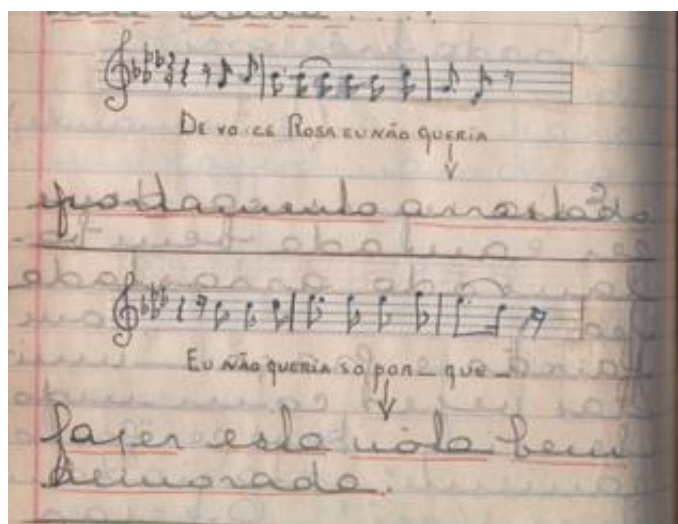 DE VOCE ROSA EU NÃO QUERIA
portamento arrastado
EU NÃO QUERIA SO POR_ QUE_
fazer esta nota bem
demorada.